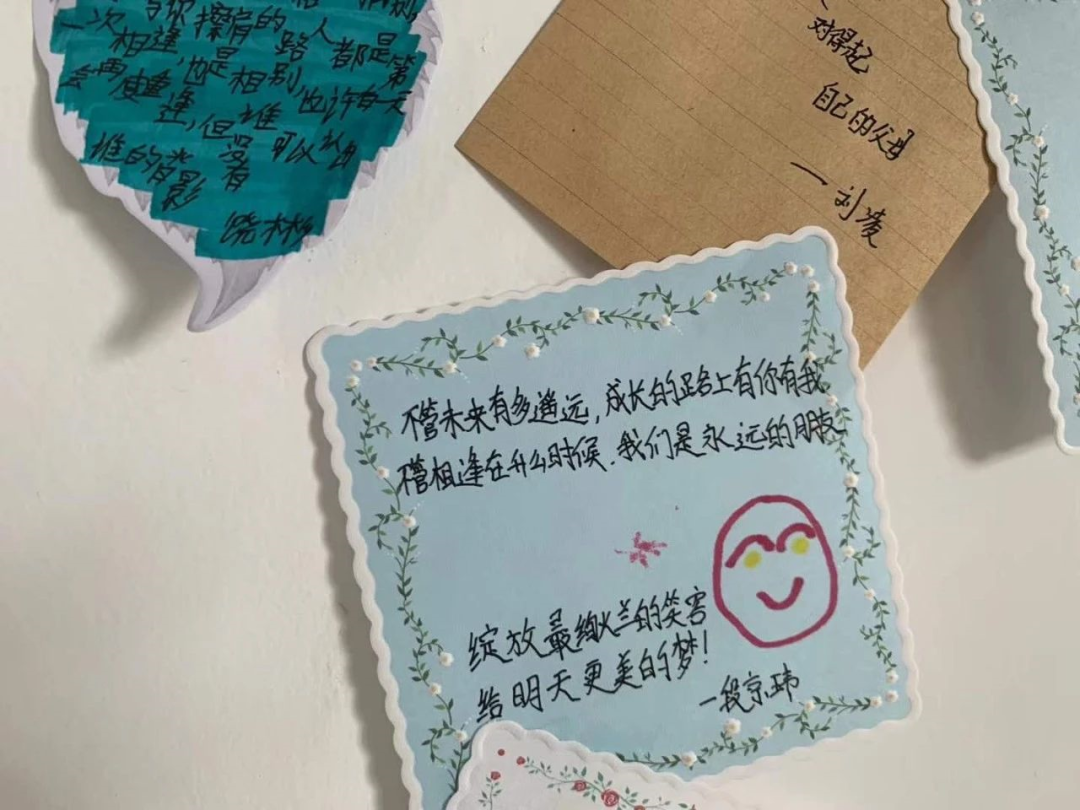 与你擦肩的路人都是
一次相逢,也是相别,也许有天
会再度重逢,但谁可以
谁的 没有
影
晓彬
对得起
自己的父母
一刘凌
不管未来有多遥远,成长的路上有你有我
不管相逢在什么时候,我们是永远的朋友
绽放最绚烂的笑容
给明天更美的梦!
一段京玮